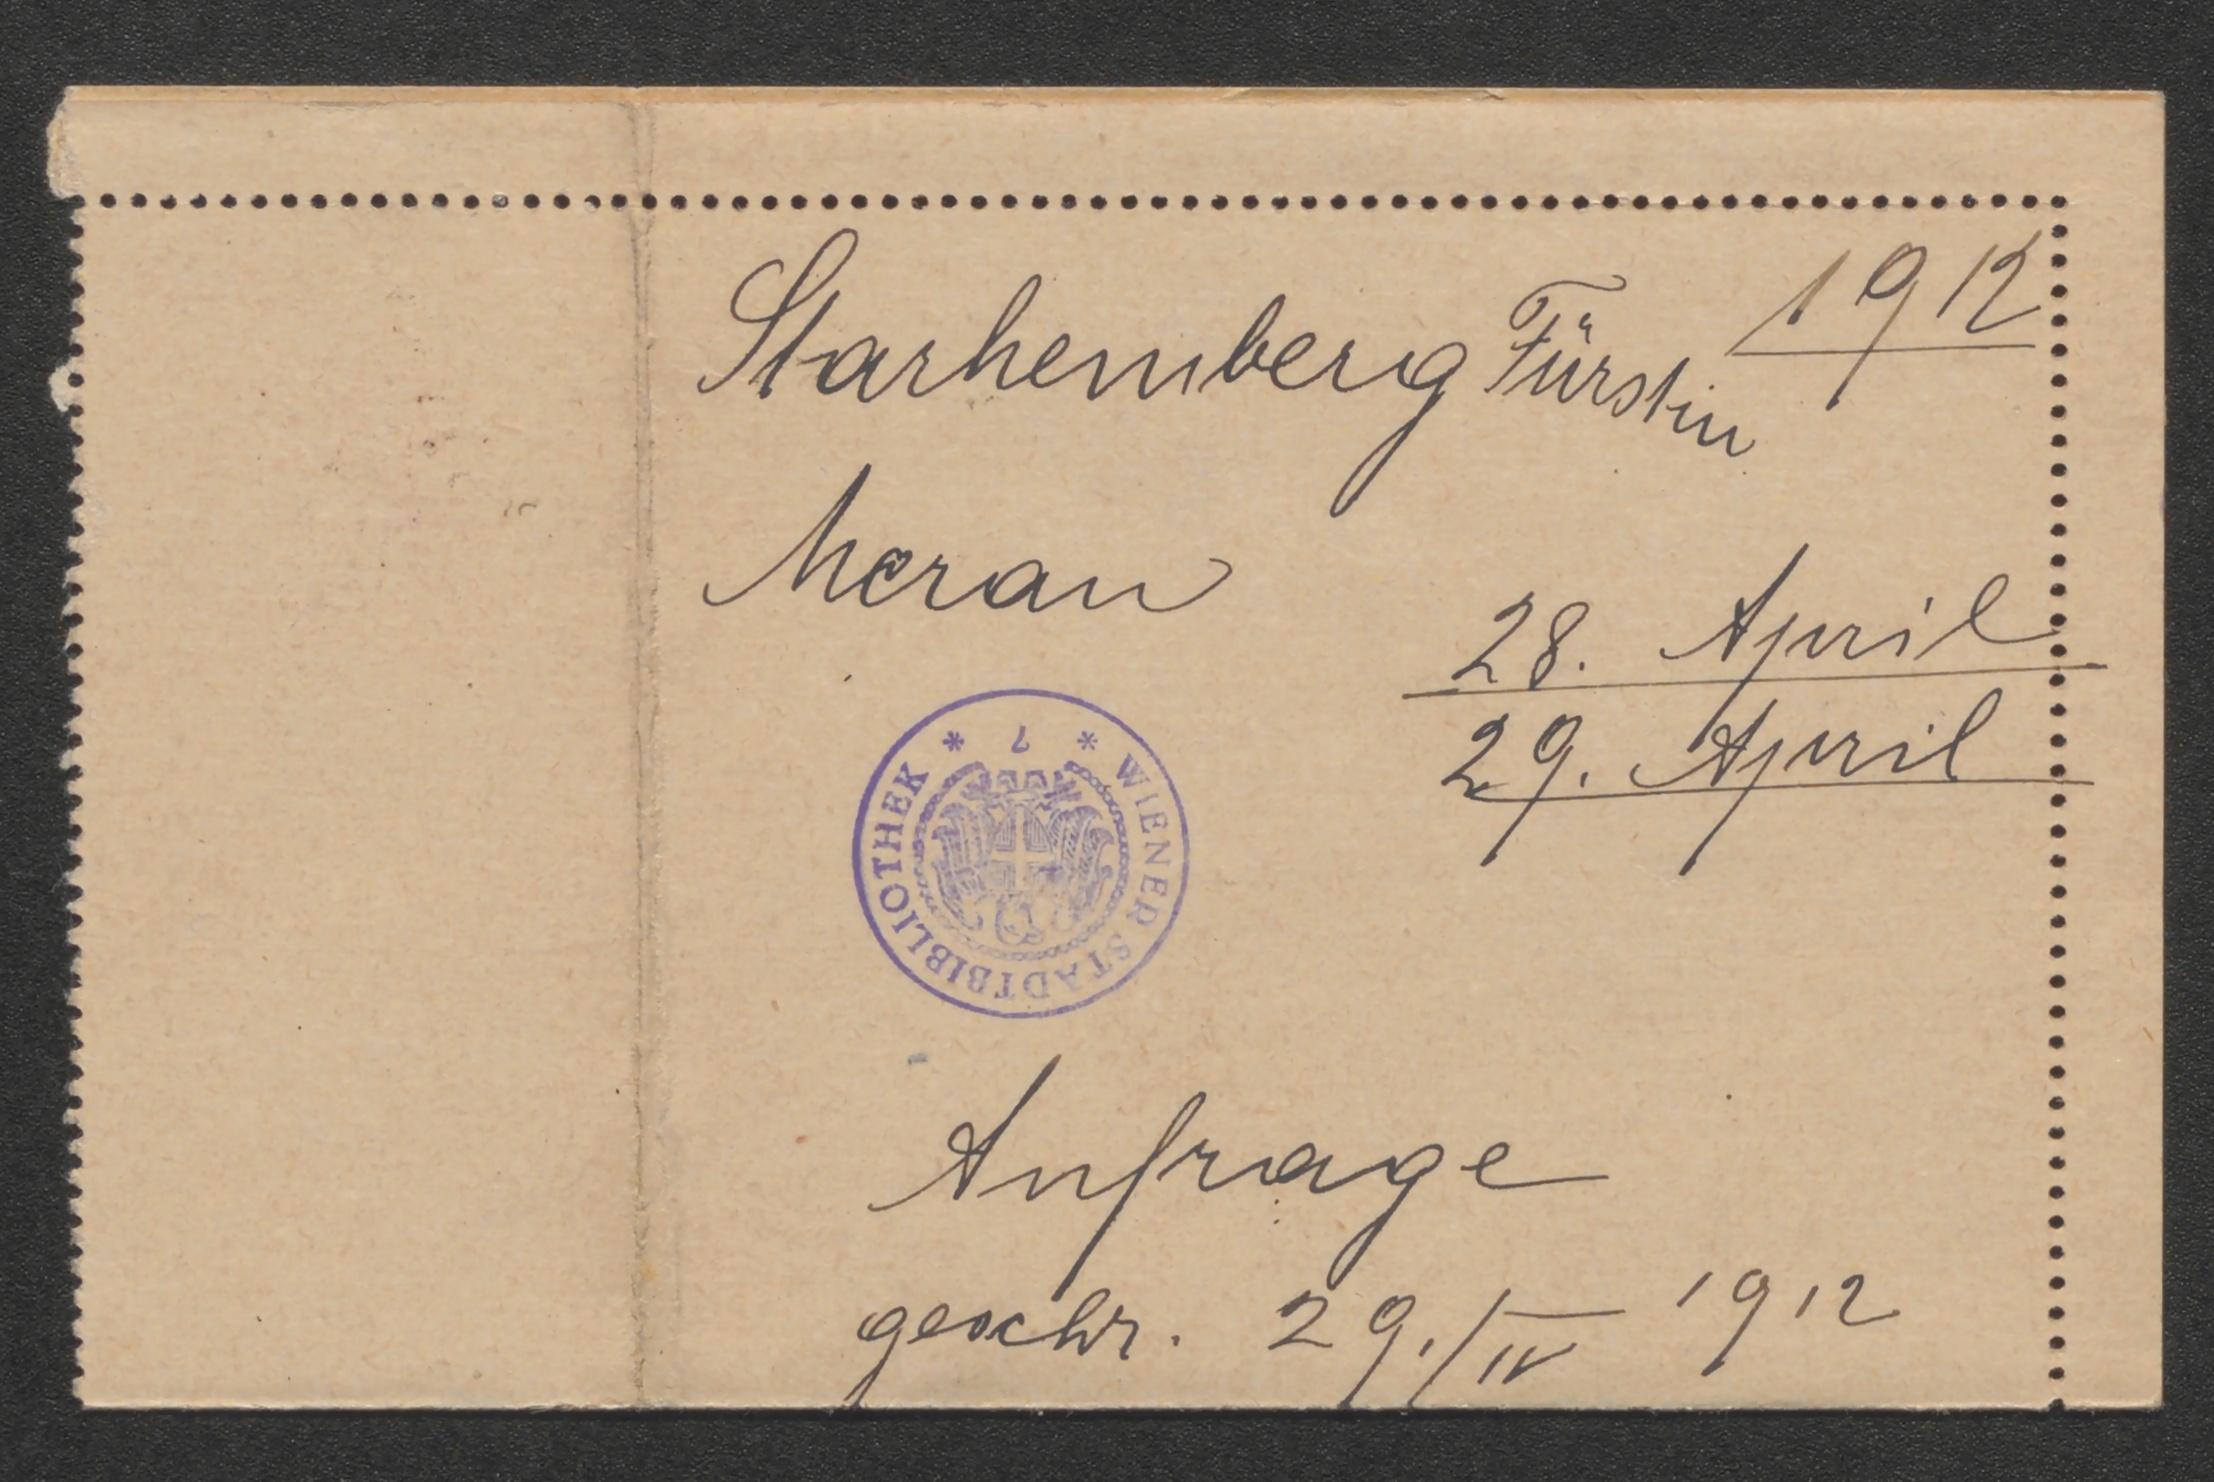 Starhemberg Fürstin 1912
Meran
28. April
29. April
* 7 * WIENER STADTBIBLIOTHEK
Anfrage
geschr. 29./IV 1912